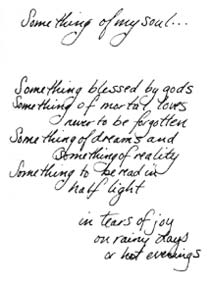 Something of my soul...
Something blessed by gods
Something of mortal loves
never to be forgotten
Something of dreams and
Something of reality
Something to be read in
half light
in tears of joy
on rainy days
or hot evenings